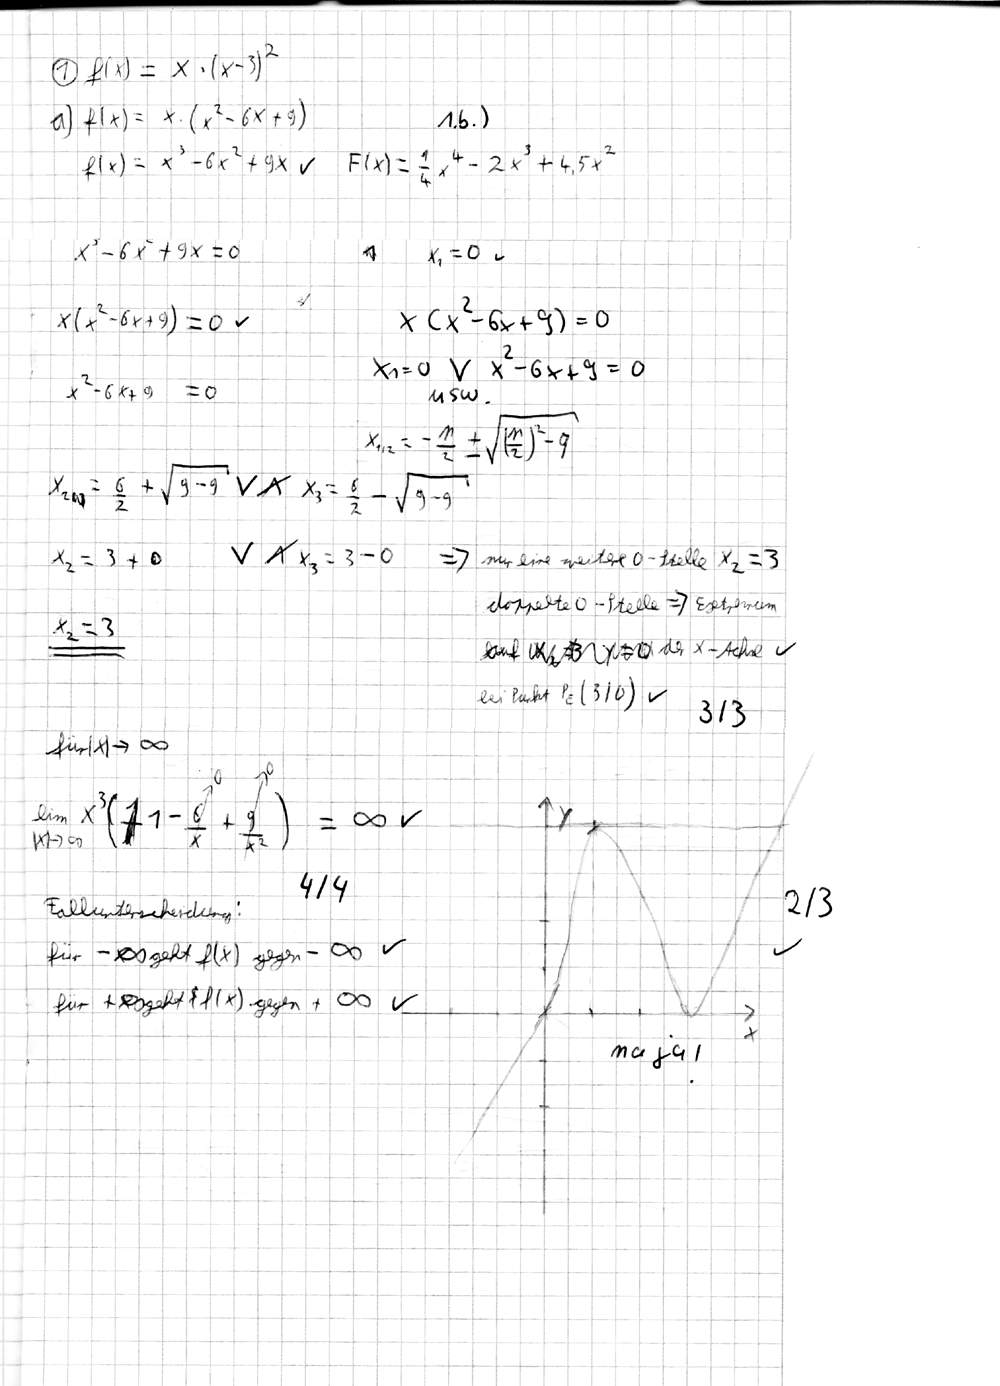 ① f(x) = x · (x-3)²
a) f(x) = x · (x² - 6x + 9)
1.b.)
f(x) = x³ - 6x² + 9x ✓ F(x) = 1/4 x⁴ - 2x³ + 4,5x²
x³ - 6x² + 9x = 0
x₁ = 0 ✓
x(x² - 6x + 9) = 0 ✓
x(x² - 6x + 9) = 0
x₁ = 0 ∨ x² - 6x + 9 = 0
x² - 6x + 9 = 0
usw.
x₁,₂ = - n/2 ± √((n/2)² - q)
x₂ = 6/2 + √(9-9) ∨ x₃ = 6/2 - √(9-9)
x₂ = 3 + 0 ∨ x₃ = 3 - 0 ⇒ nur eine weitere 0-Stelle x₂ = 3
doppelte 0-Stelle ⇒ Extremum
x₂ = 3
auf der x-Achse ✓
bei Punkt P_E (3/0) ✓
3/3
für |x| → ∞
lim |x|→∞ x³(1 - 6/x + 9/x²) = ∞ ✓
0 0
4/4
Fallunterscheidung:
für -∞ geht f(x) gegen - ∞ ✓
für +∞ geht f(x) gegen + ∞ ✓
y
2/3
✓
x
na ja!